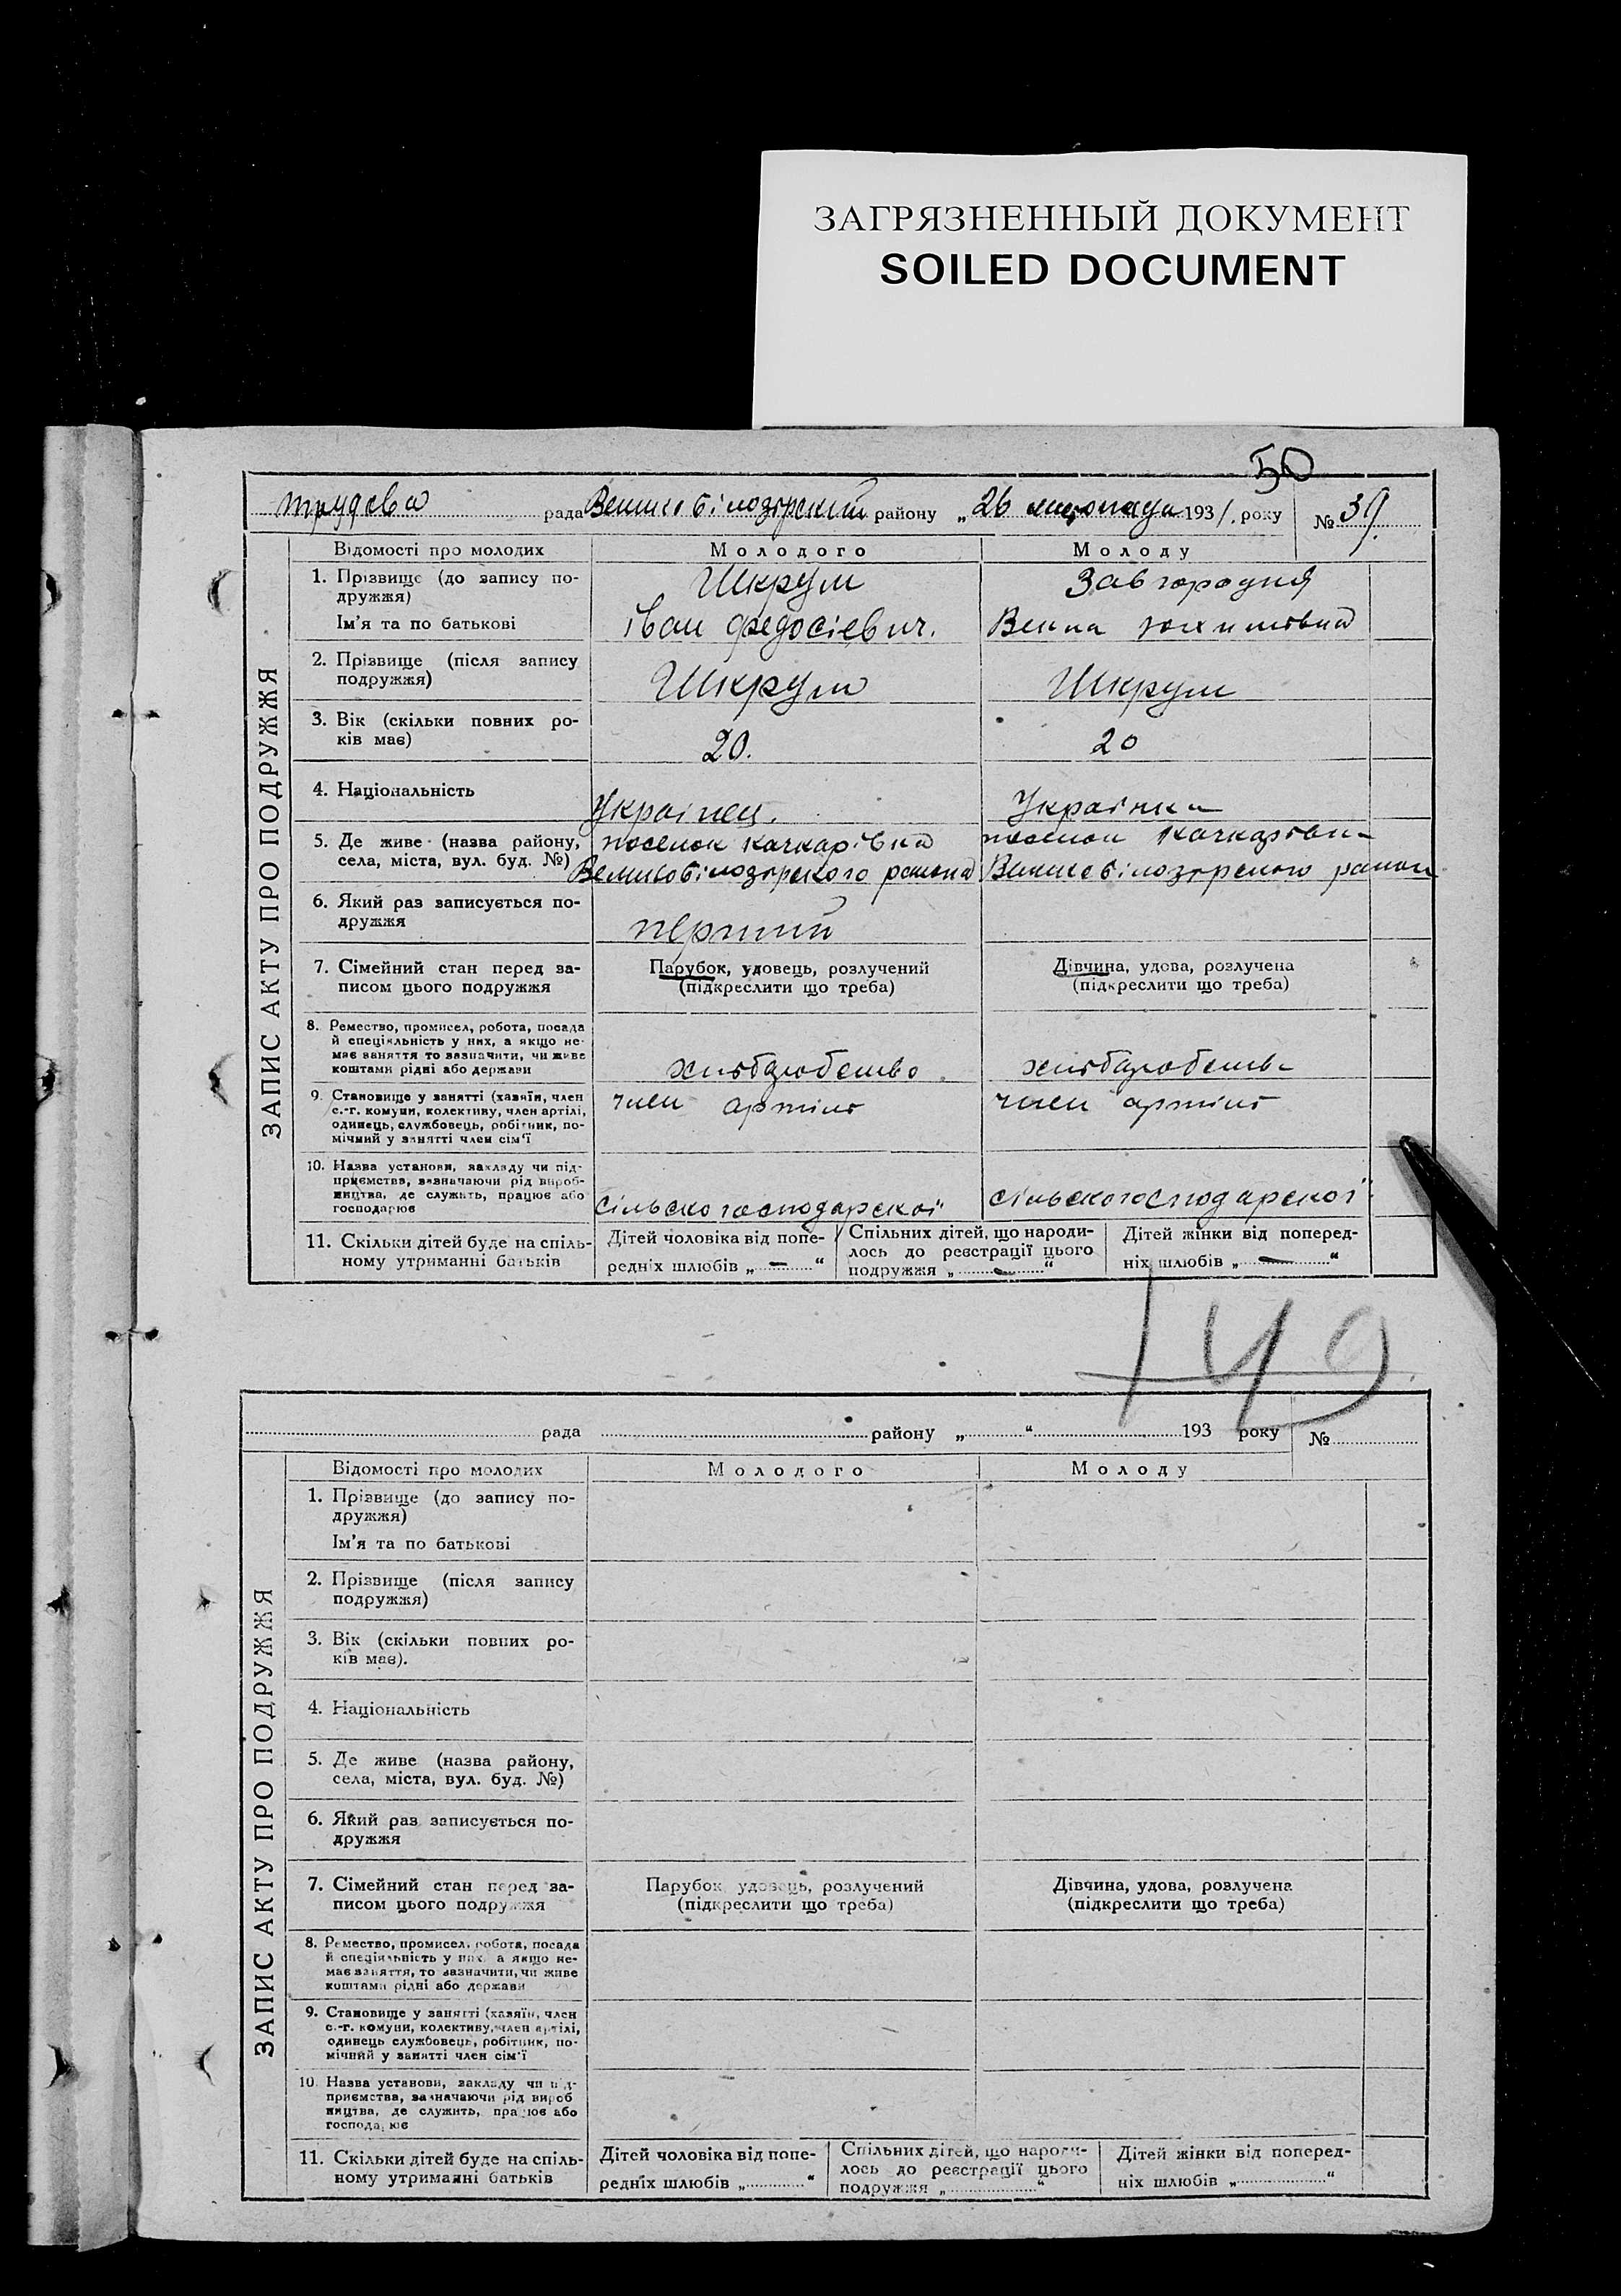 ЗАГРЯЗНЕННЫЙ ДОКУМЕНТ
SOILED DOCUMENT
50
трудова рада Великобілозірський району „26 листопада 1931. року № 39
ЗАПИС АКТУ ПРО ПОДРУЖЖЯ
Відомості про молодих Молодого Молоду
1. Прізвище (до запису по-
дружжя) Шкрум Завгородня
Ім'я та по батькові Іван Федосієвич.
2. Прізвище (після запису
подружжя) Шкрум Шкрум
3. Вік (скільки повних ро-
ків має) 20. 20
4. Національність Українец. Українка
5. Де живе (назва району, поселок качкарівка поселок качкарівка
села, міста, вул. буд. №) Великобілозірского района Великобілозірского район
6. Який раз записується по-
дружжя перший
7. Сімейний стан перед за- Парубок, удовець, розлучений Дівчина, удова, розлучена
писом цього подружжя (підкреслити що треба) (підкреслити що треба)
8. Ремество, промисел, робота, посада
й спеціяльність у них, а якщо не-
має заняття то зазначити, чи живе
коштами рідні або держави хліборобство хліборобство
9. Становище у занятті (хазяїн, член
с.-г. комуни, колективу, член артілі, член артілі член артілі
одинець, службовець, робітник, по-
мічний у занятті член сім'ї
10. Назва установи, закладу чи під-
приємства, зазначаючи рід вироб-
ництва, де служить, працює або
господарює сільскогосподарскоі сільскогосподарскоі
11. Скільки дітей буде на спіль- Дітей чоловіка від попе- Спільних дітей, що народи- Дітей жінки від поперед-
ному утриманні батьків редніх шлюбів „ — “ лось до реєстрації цього ніх шлюбів „ — “
подружжя „ — “
рада району „ “ 193 року №
ЗАПИС АКТУ ПРО ПОДРУЖЖЯ
Відомості про молодих Молодого Молоду
1. Прізвище (до запису по-
дружжя)
Ім'я та по батькові
2. Прізвище (після запису
подружжя)
3. Вік (скільки повних ро-
ків має).
4. Національність
5. Де живе (назва району,
села, міста, вул. буд. №)
6. Який раз записується по-
дружжя
7. Сімейний стан перед за- Парубок, удовець, розлучений Дівчина, удова, розлучена
писом цього подружжя (підкреслити що треба) (підкреслити що треба)
8. Ремество, промисел, робота, посада
й спеціяльність у них, а якщо не-
має заняття, то зазначити, чи живе
коштами рідні або держави
9. Становище у занятті (хазяїн, член
с.-г. комуни, колективу, член артілі,
одинець службовець, робітник, по-
мічний у занятті член сім'ї
10. Назва установи, закладу чи під-
приємства, зазначаючи рід вироб
ництва, де служить, працює або
господарює
11. Скільки дітей буде на спіль- Дітей чоловіка від попе- Спільних дітей, що народи- Дітей жінки від поперед-
ному утриманні батьків редніх шлюбів „ “ лось до реєстрації цього ніх шлюбів „ “
подружжя „ “